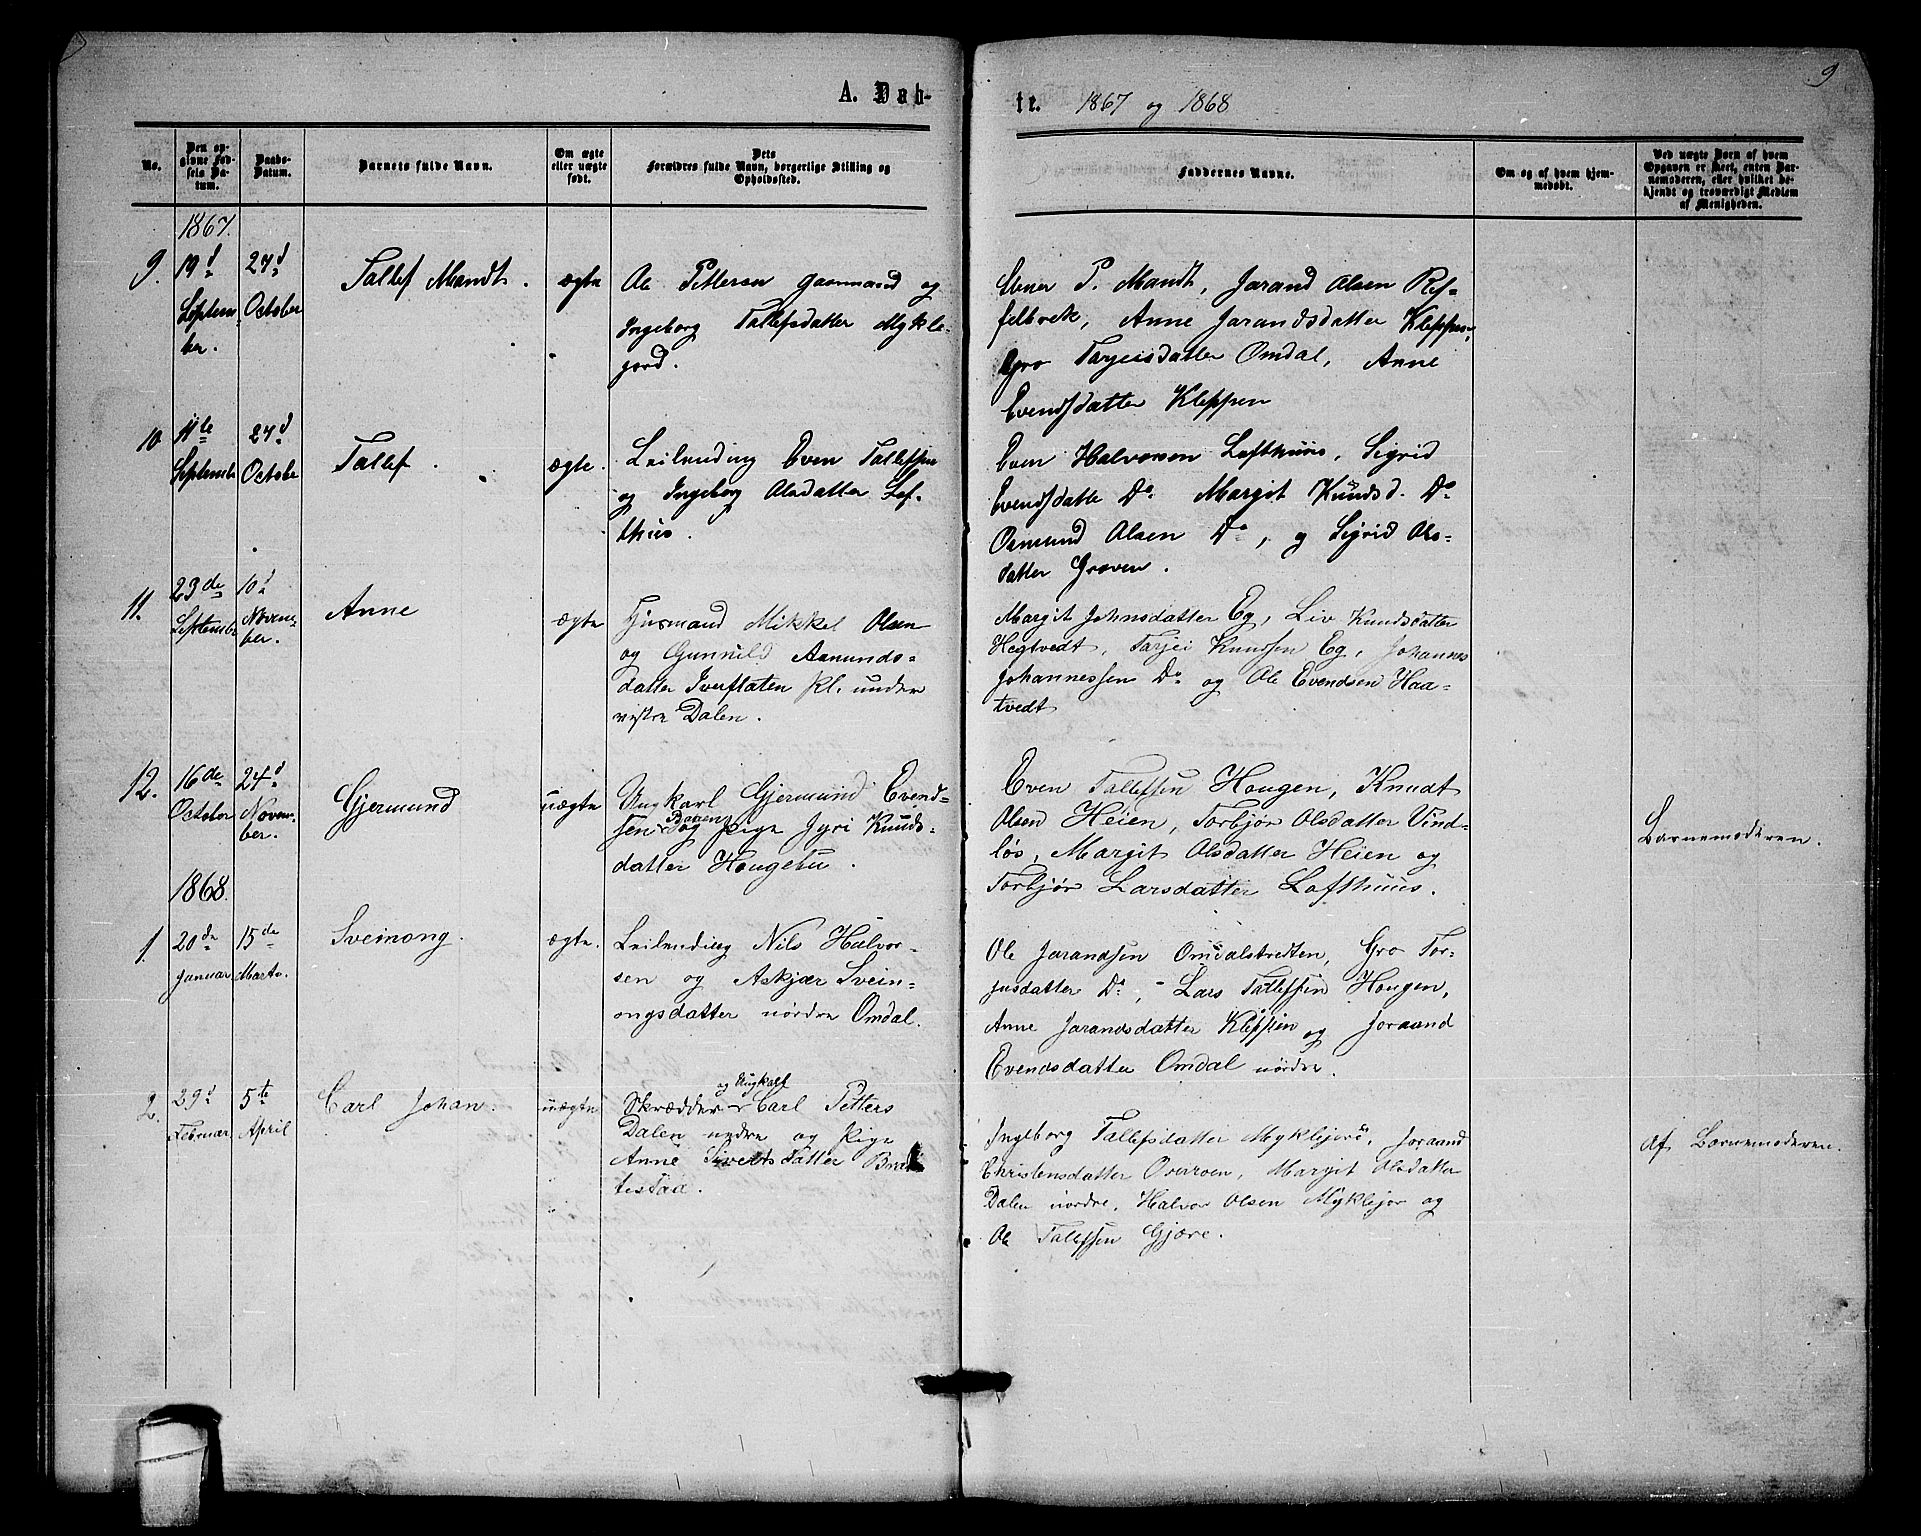 9
A. Døb-
te. 1867 og 1868
No.
Den op-
givne Fød-
sels Da-
tum.
Daabs-
Datum.
Barnets fulde Navn.
Om ægte
eller uægte
født.
Dets
Forældres fulde Navn, borgerlige Stilling og
Opholdssted.
Faddernes Navne.
Om og af hvem hjem-
medøbt.
Ved uægte Børn af hvem
Opgaven er skeet, enten Bar-
nemoderen, eller hvilket be-
kjendt og troværdigt Medlem
af Menigheden.
1867.
9. 19d
Septem-
ber.
27d
October
Tallef Mandt.
ægte
Ole Pettersen Gaarmand og
Ingeborg Tallefsdatter Mykle-
gjord.
P. Mandt, Jarand Olsen
Anne Jarandsdatter Kleppen,
Gro Tarjeisdatter Omdal, Anne
Evendsdatter Kleppen
10 11te
Septembe
27d
Octobe
Tallef.
ægte.
Leilending Even Tallefsen
og Ingeborg Olsdatter Lof-
thuus.
Even Halvorsen Lofthuus, Sigrid
Evendsdatte Do Margit Knudsd. Do
Osmund Olsen Do, og Sigrid Ols-
datter Groven.
11. 23de
September
10d
Novem-
ber.
Anne
ægte
Huusmand Mikkel Olsen
og Gunnild Aanunds-
datter Iverflaten pl. under
vestre Dalen.
Margit Johnsdatter Eg, Liv Knudsdatter
Hegtvedt, Tarjei Knudsen Eg, Johannes
Johannessen Do og Ole Evendsen Haa-
tvedt
12. 16de
October
24d
Novem-
ber.
Gjermund
uægte
Ungkarl Gjermund Evend-
sen og Pige Jyri Knuds-
datter Hougetu.
Even Tallefsen Hougen, Knudt
Olsen Heien, Torbjør Olsdatter Vind-
løs, Margit Olsdatter Heien og
Torbjør Larsdatter Lofthuus.
Barnemoderen.
1868.
1. 20de
Januar
15de
Marts.
Sveinong.
ægte.
Leilending Nils Halvor-
sen og Askjær Svein-
ongsdatter nordre Omdal.
Ole Jarandsen Omdalstveiten, Gro Tor-
jusdatter Do, - Lars Tallefsen Hougen,
Anne Jarandsdatter Kleppen og Joraand
Evendsdatter Omdal nordre.
2. 29d
Februar
5te
April
Carl Johan.
uægte
og Ungkarl
Skrædder Carl Petters
Dalen nedre og Pige
Anne Sivertsdatter Brat-
testaa.
Ingeborg Tallefsdatter Myklejord, Joraand
Christensdatter Overroen, Margit Olsdatter
Dalen nordre, Halvor Olsen Myklejor og
Ole Tallefsen Gjøre.
af Barnemoderen.